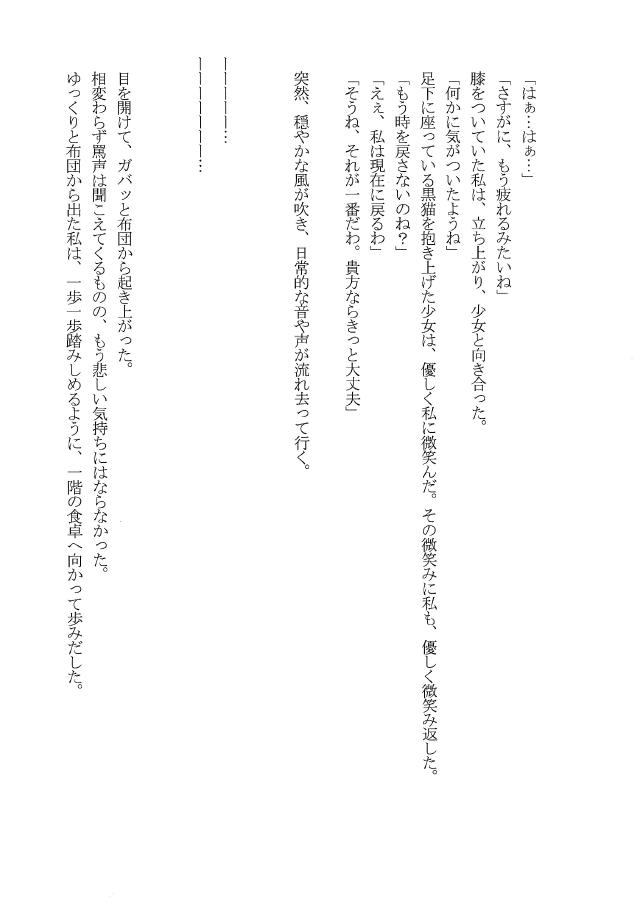 「はぁ…はぁ…」
「さすがに、もう疲れるみたいね」
膝をついていた私は、立ち上がり、少女と向き合った。
「何かに気がついたようね」
足下に座っている黒猫を抱き上げた少女は、優しく私に微笑んだ。その微笑みに私も、優しく微笑み返した。
「もう時を戻さないのね?」
「えぇ、私は現在に戻るわ」
「そうね、それが一番だわ。貴方ならきっと大丈夫」
突然、穏やかな風が吹き、日常的な音や声が流れ去って行く。
―――――…
―――――――…
目を開けて、ガバッと布団から起き上がった。
相変わらず罵声は聞こえてくるものの、もう悲しい気持ちにはならなかった。
ゆっくりと布団から出た私は、一歩一歩踏みしめるように、一階の食卓へ向かって歩みだした。